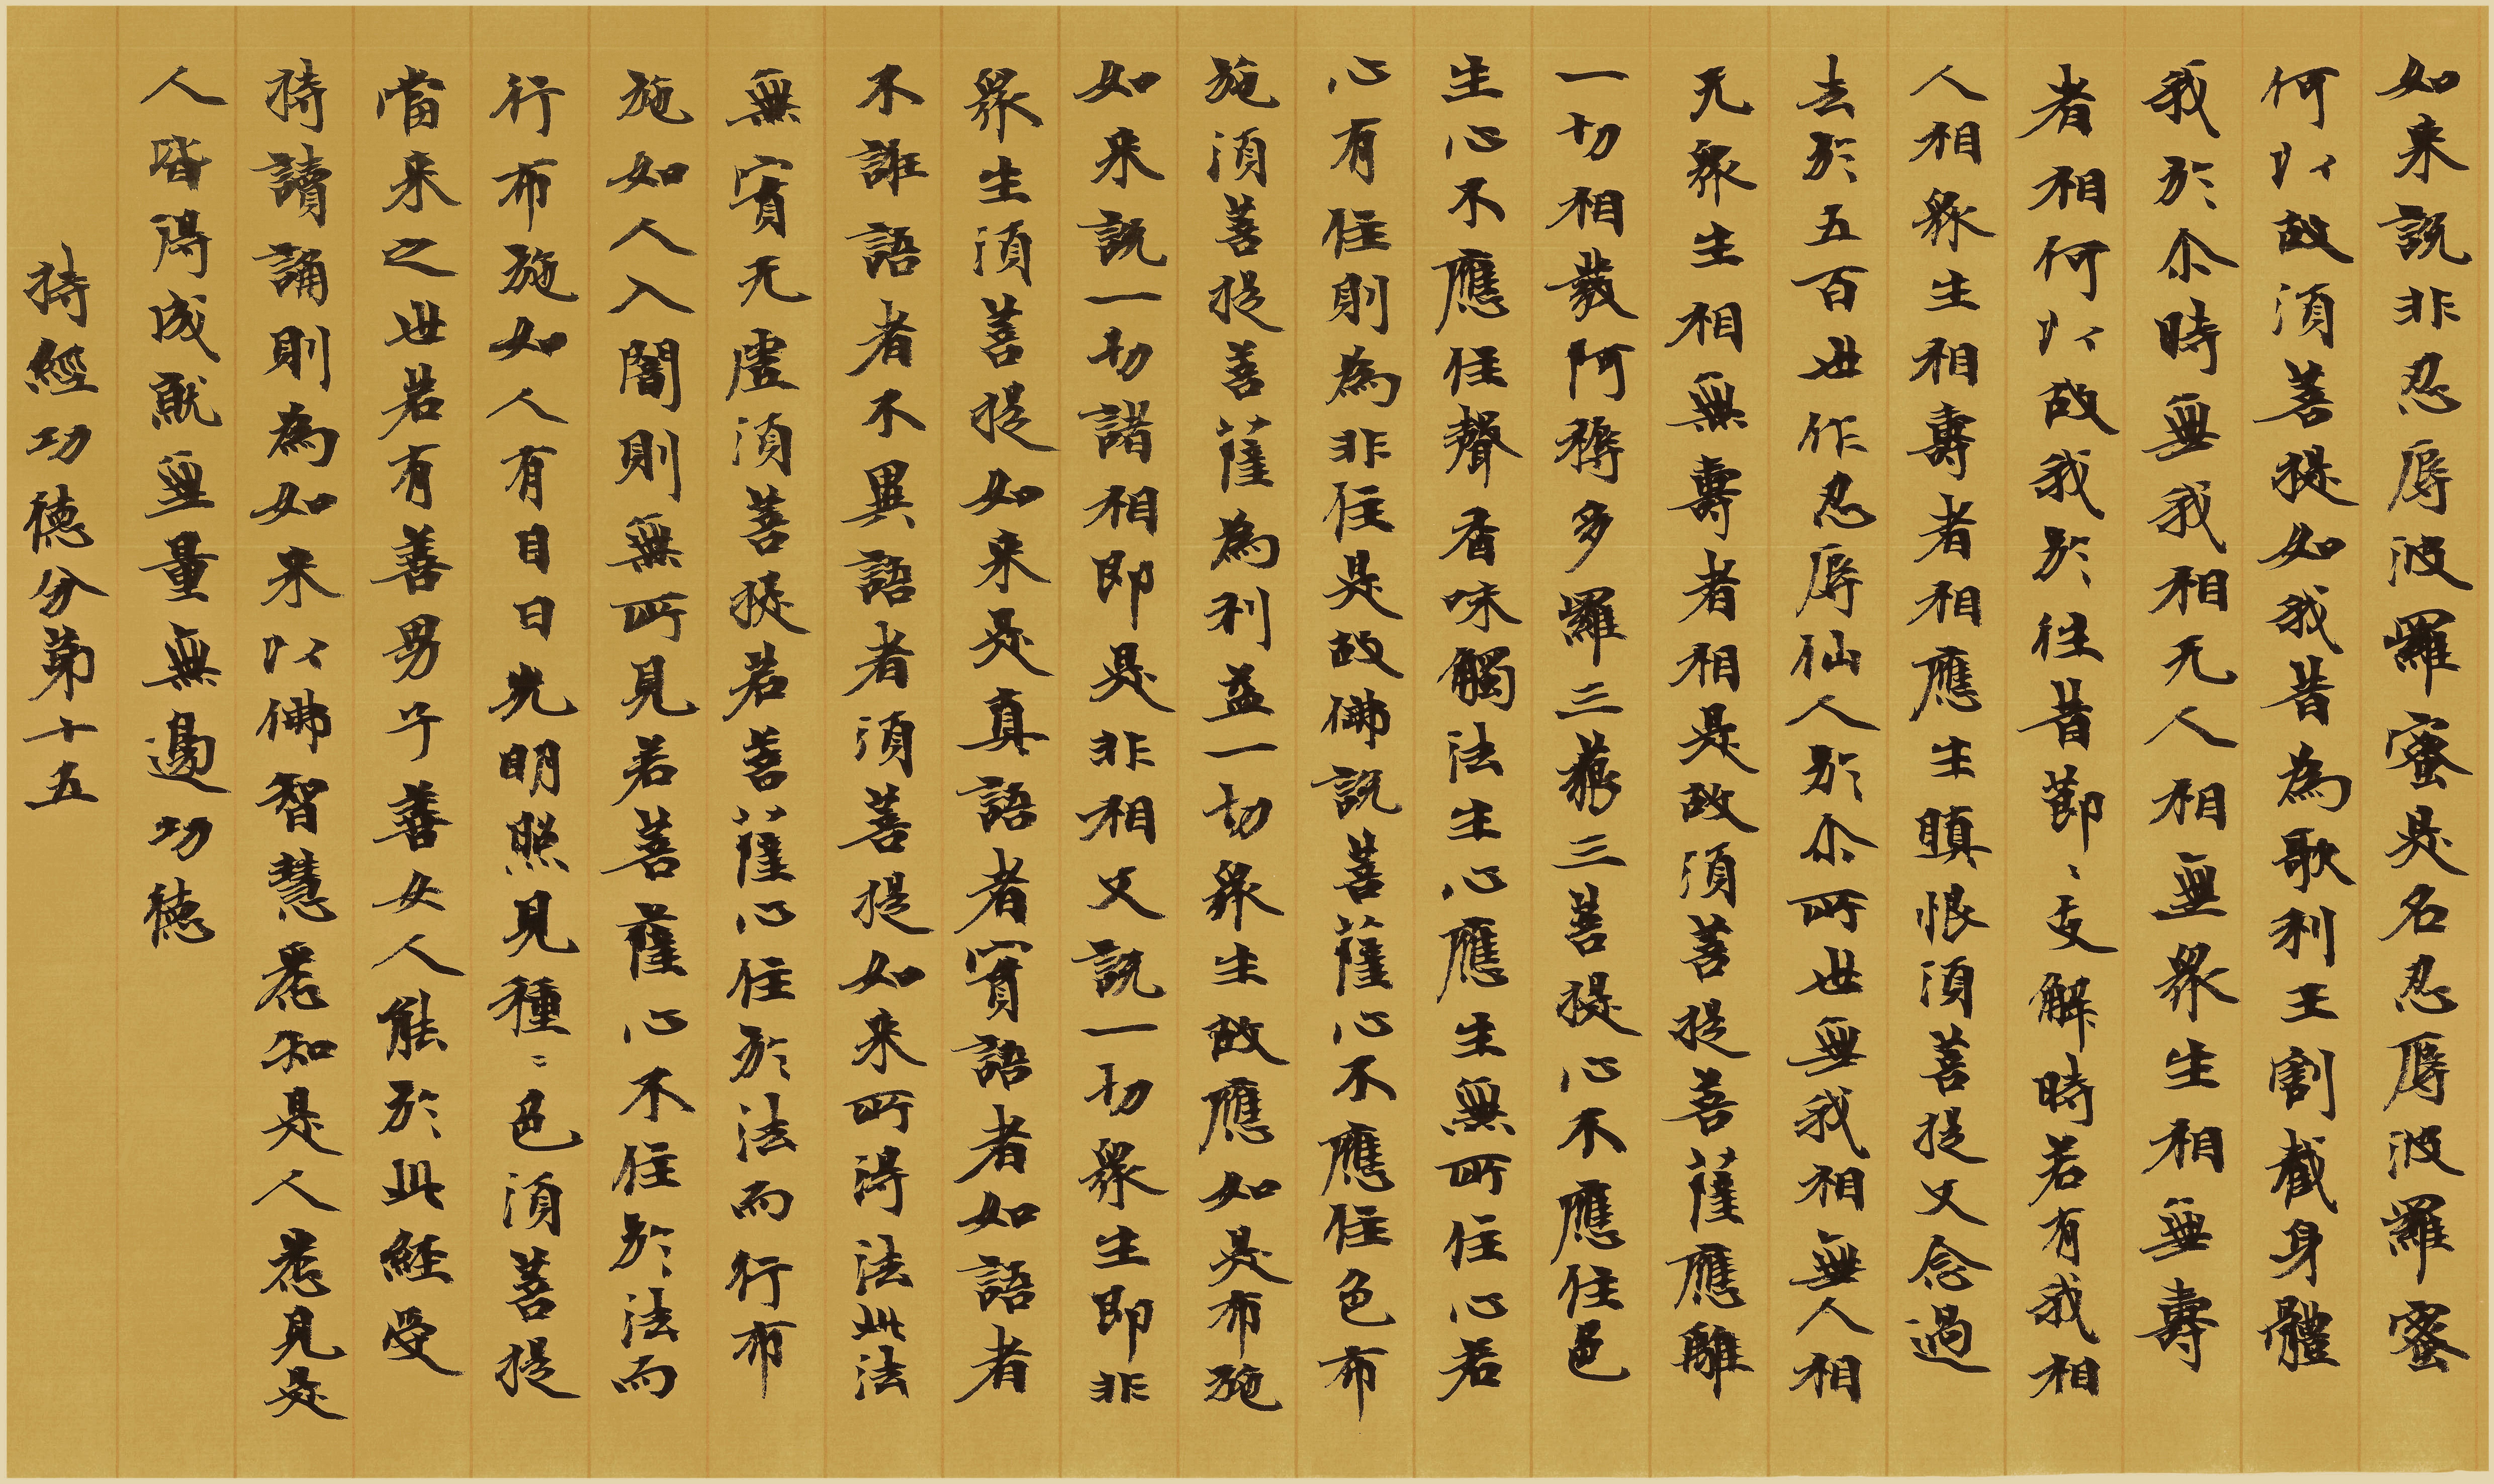 如来説非忍辱波羅蜜是名忍辱波羅蜜
何以故須菩提如我昔為歌利王割截身體
我於尒時無我相无人相無衆生相無壽
者相何以故我於往昔莭〻支解時若有我相
人相衆生相壽者相應生瞋恨須菩提又念過
去於五百世作忍辱仙人於尒所世無我相無人相
无衆生相無壽者相是故須菩提菩薩應離
一切相發阿耨多羅三藐三菩提心不應住色
生心不應住聲香味觸法生心應生無所住心若
心有住則為非住是故佛説菩薩心不應住色布
施須菩提菩薩為利益一切衆生故應如是布施
如来説一切諸相即是非相又説一切衆生即非
衆生須菩提如来是真語者實語者如語者
不誑語者不異語者須菩提如来所得法此法
無實无虛須菩提若菩薩心住於法而行布
施如人入闇則無所見若菩薩心不住於法而
行布施如人有目日光明照見種〻色須菩提
當来之世若有善男子善女人能於此經受
持讀誦則為如来以佛智慧悉知是人悉見是
人皆得成就無量無邊功德
持經功德分第十五